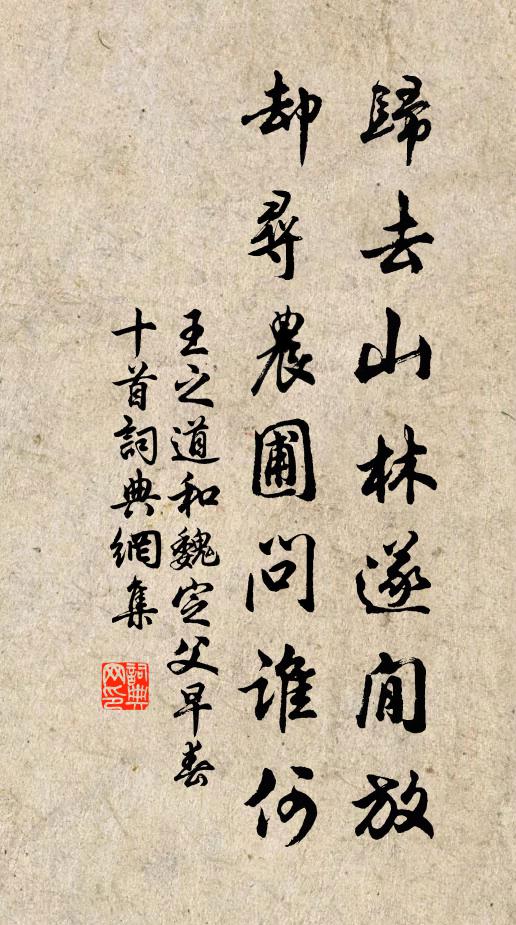 歸去山林遂閒放
却尋農圃問誰何
王之道和魏定父早春
十首詞典網集
詞典
网印